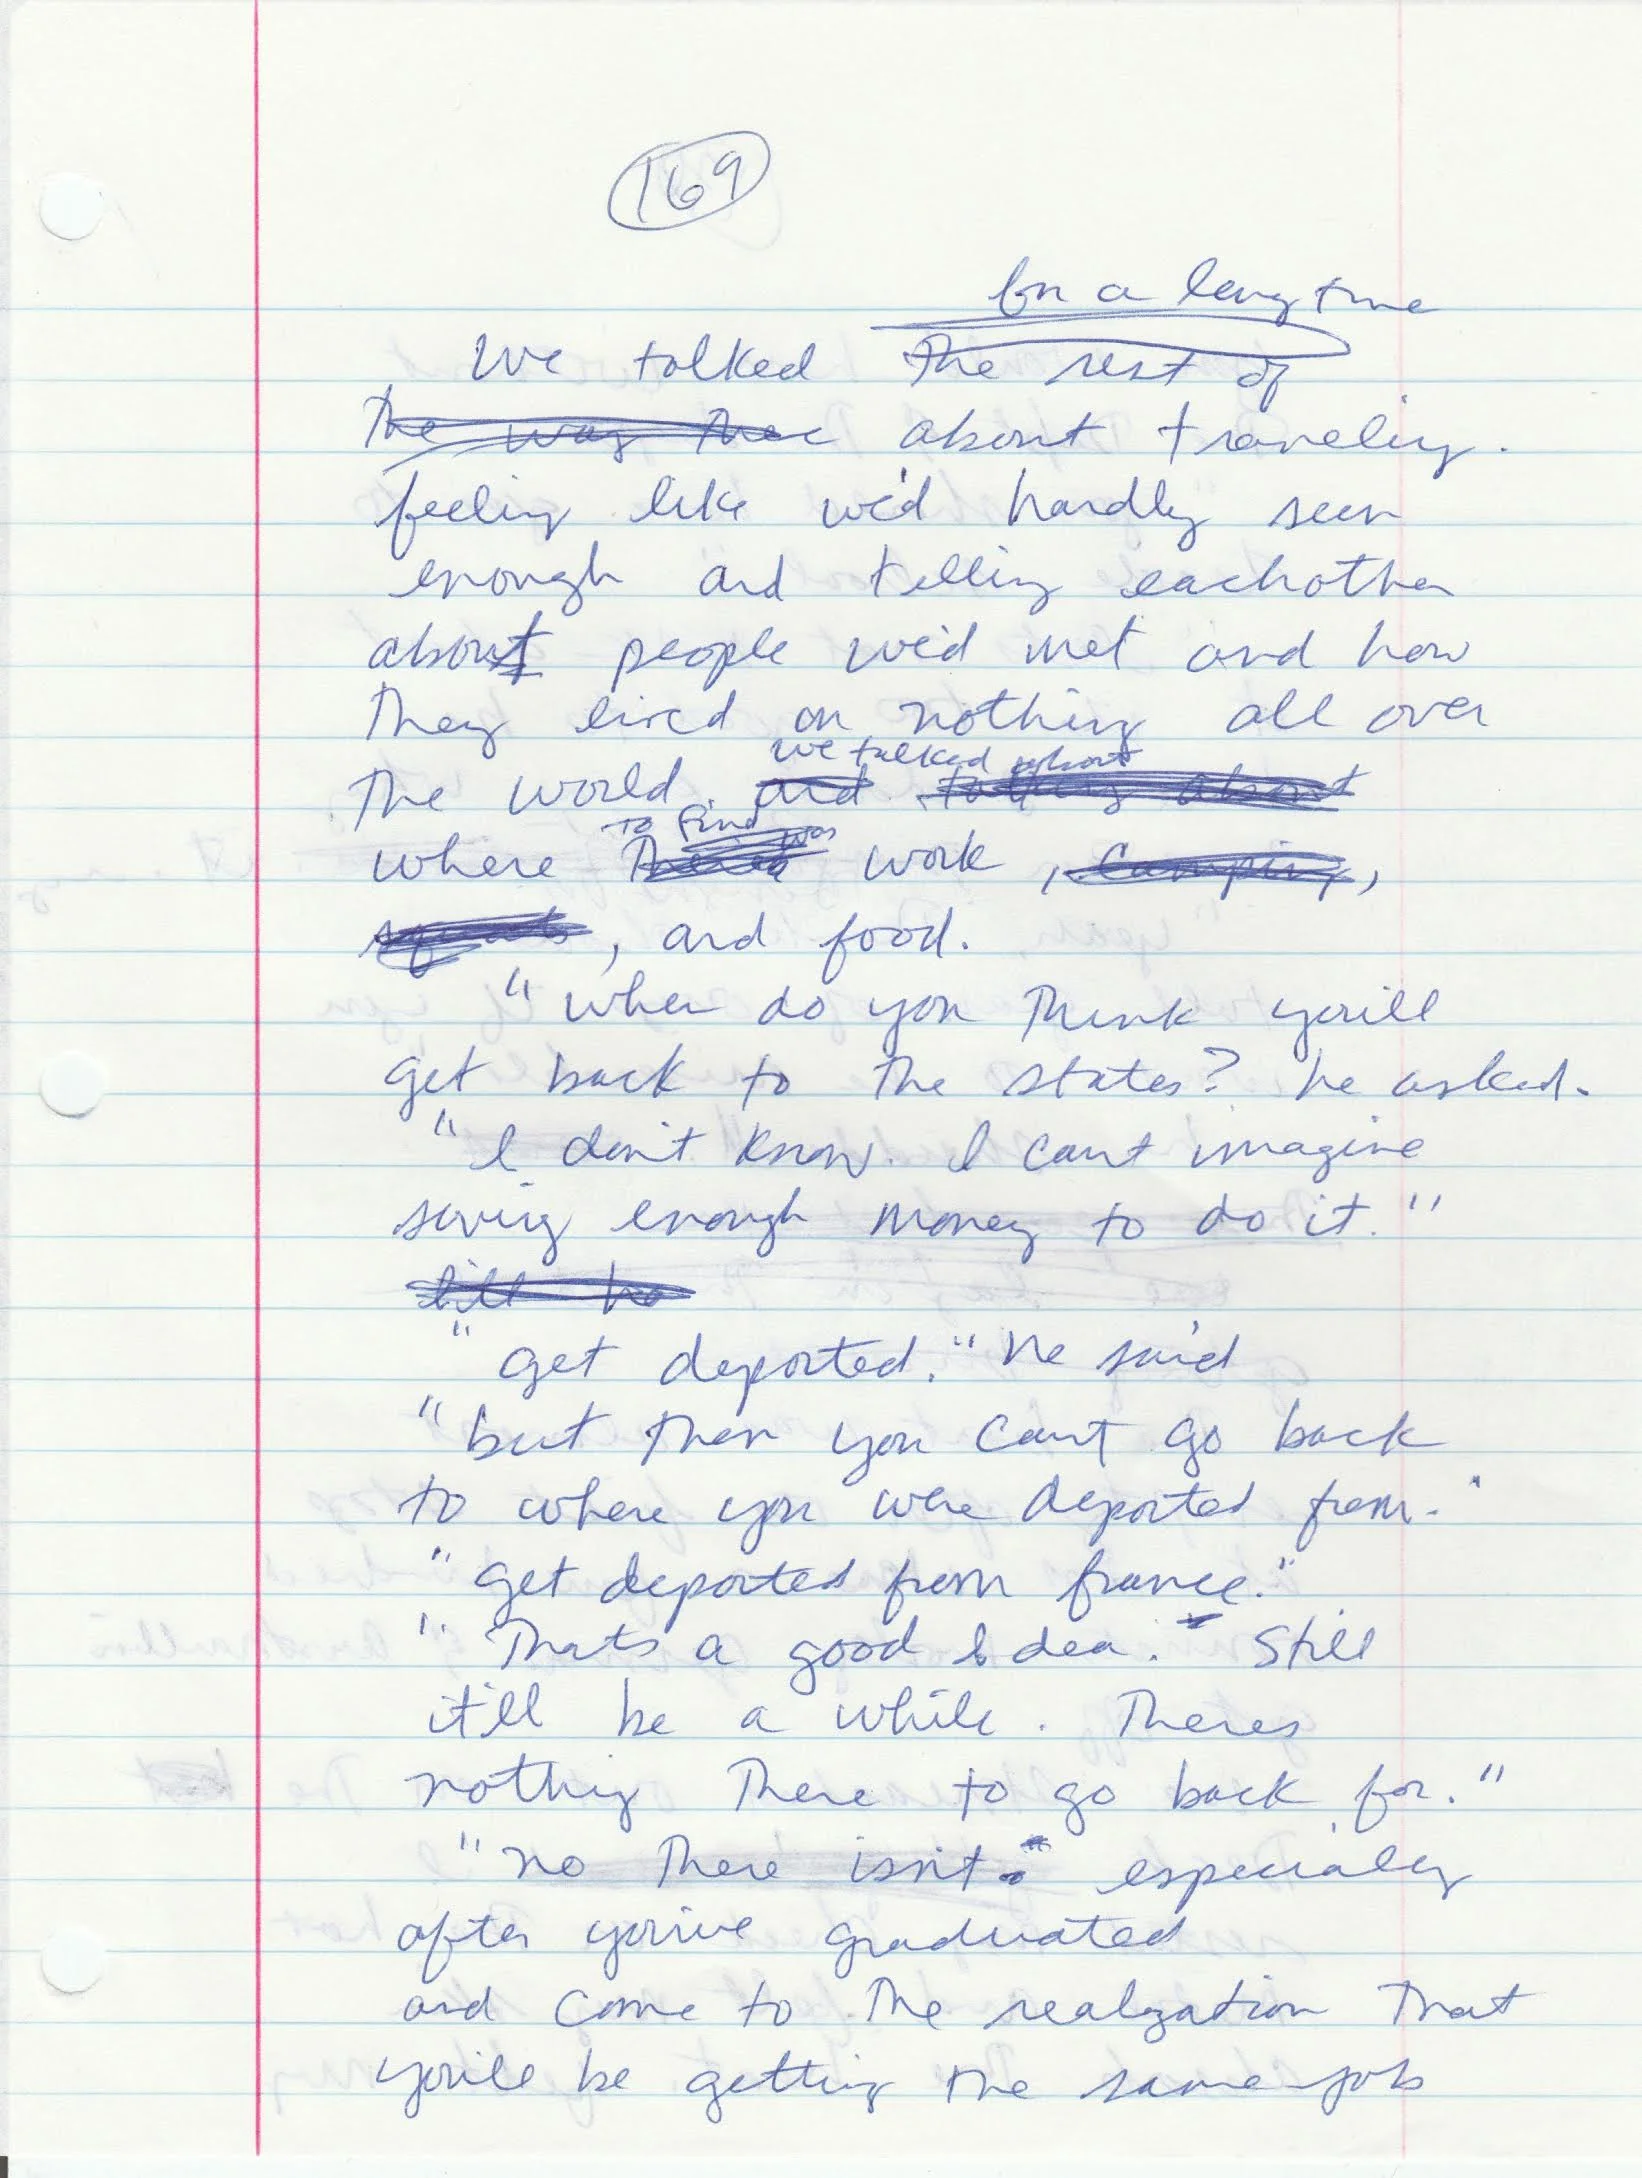 169
for a long time
We talked the rest of
the way there about traveling.
feeling like we'd hardly seen
enough and telling eachother
about people we'd met and how
They lived on nothing all over
The world. and talking about
we talked about
where There's work, camping,
to find was
squats, and food.
"when do you Think you'll
get back to the states? he asked.
"I don't know. I can't imagine
saving enough money to do it."
till he
"get deported." he said
"but then you can't go back
to where you were deported from."
"get deported from france."
"Thats a good Idea. Still
it'll be a while. Theres
nothing There to go back for."
"no There isn't. especially
after you've graduated
and come to the realization That
you'll be getting the same job